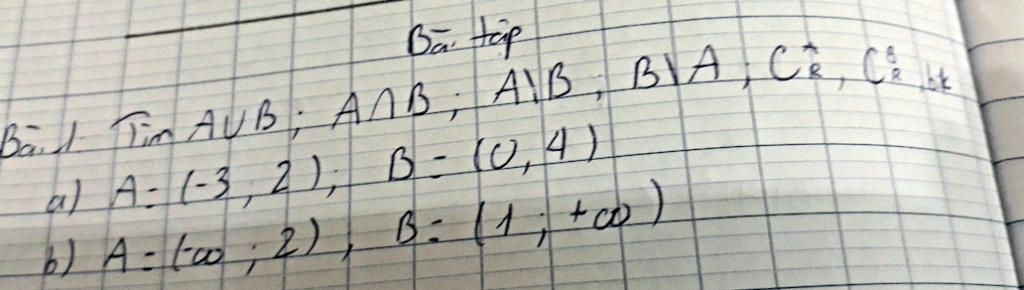 Bài tập
Bài 1. Tìm A∪B; A∩B; A\B; B\A; C_R^A, C_R^B, bk
a) A = (-3; 2); B = (0, 4)
b) A = (-∞; 2), B = (1; +∞)